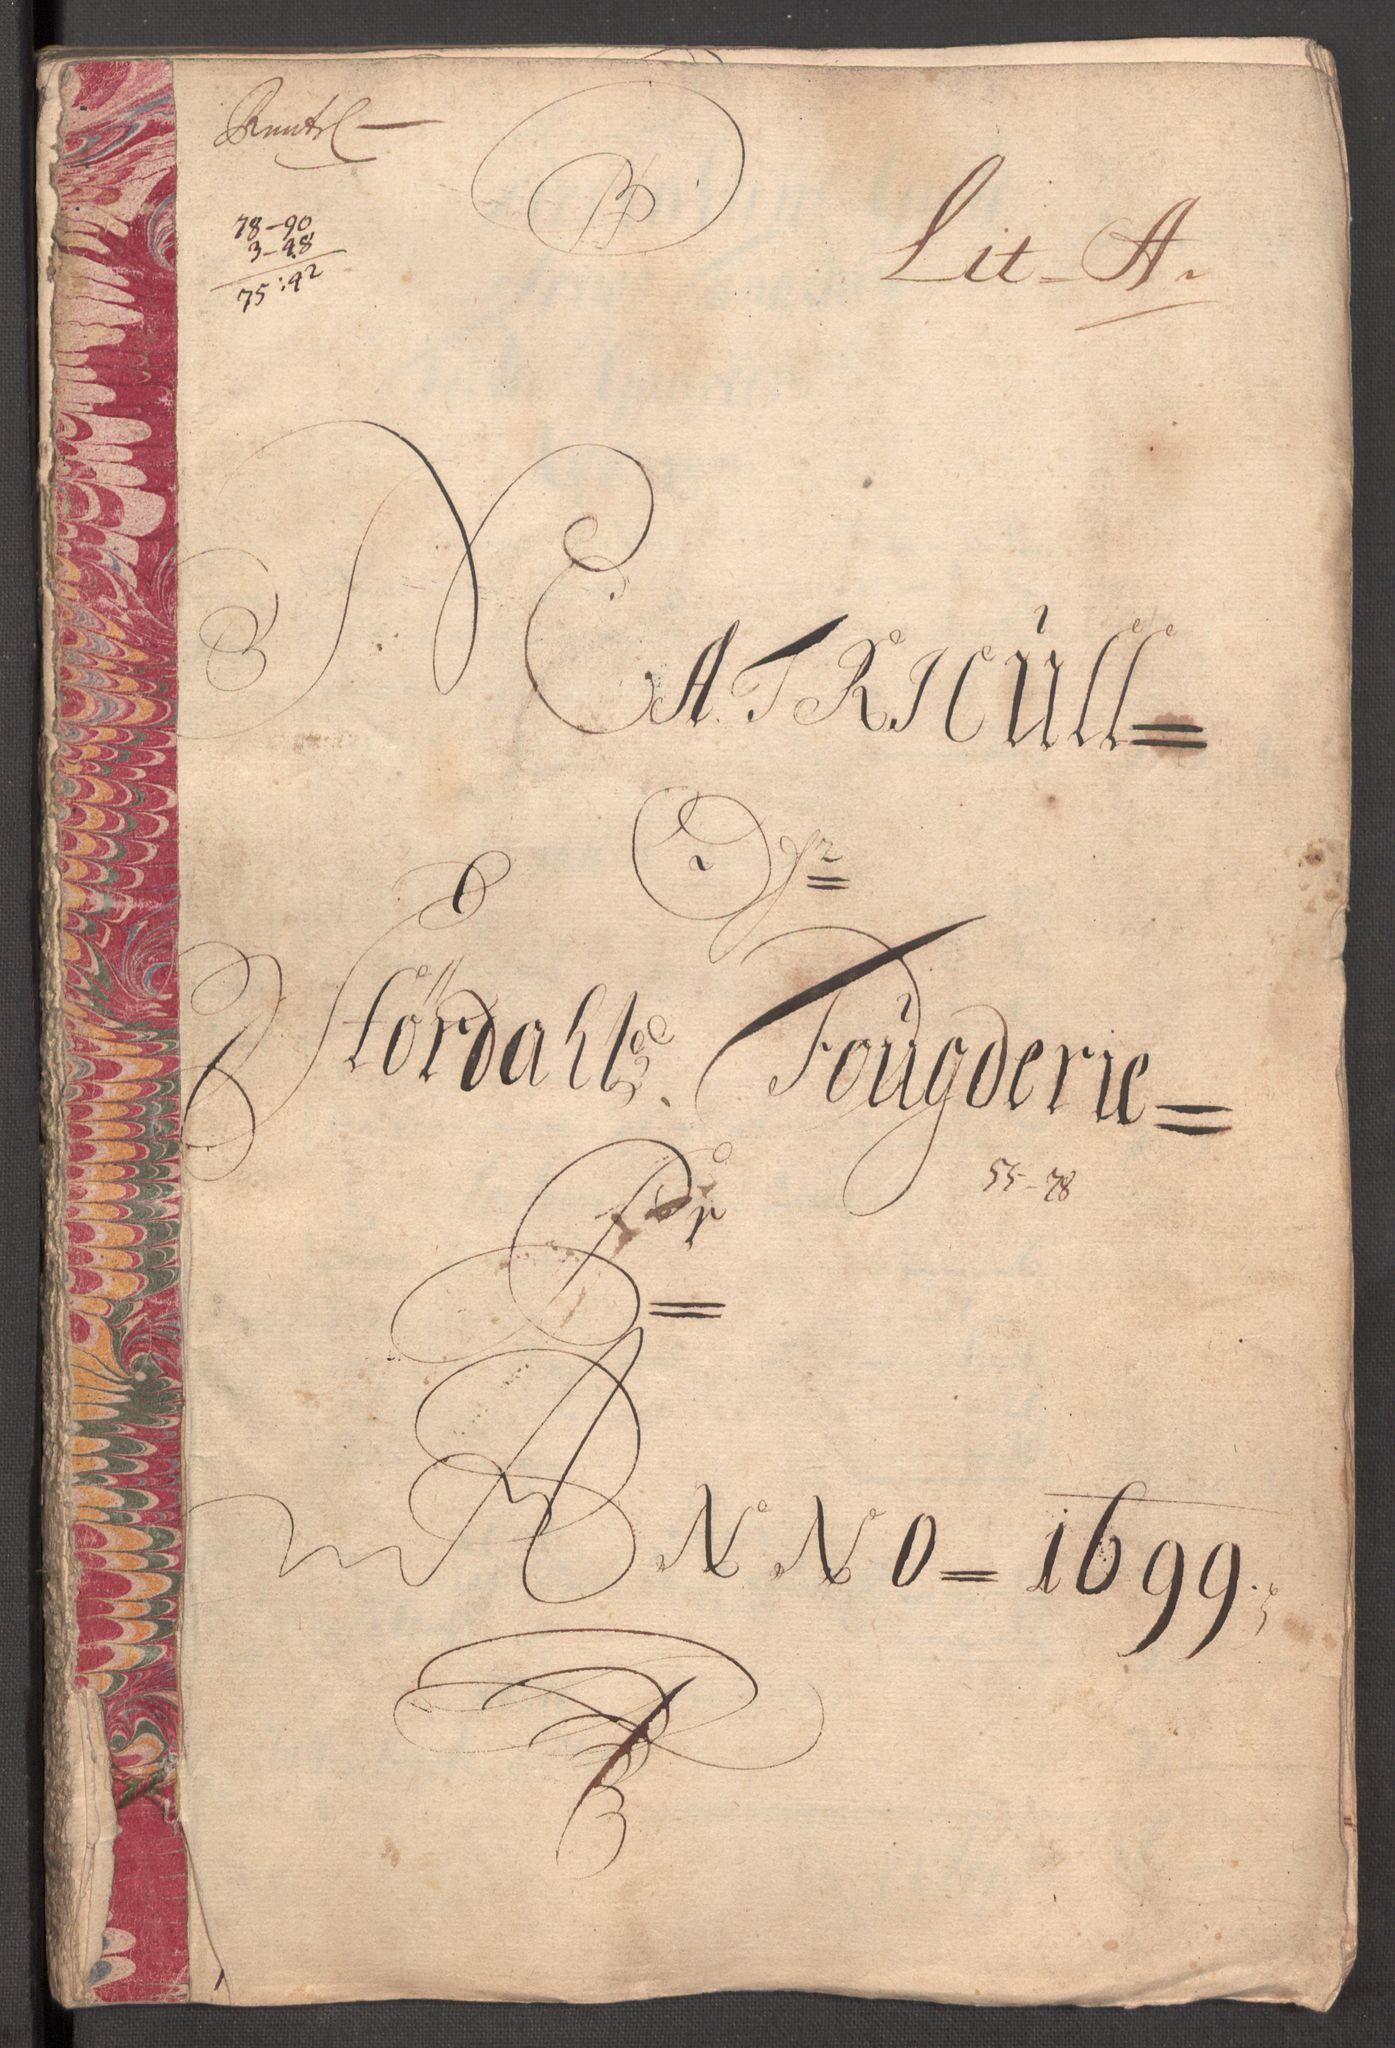 Lit A
78-90
3-48
75:42
MATRICULL
Ofr
Stördahls Fougderie
55-78
For
ANNO 1699